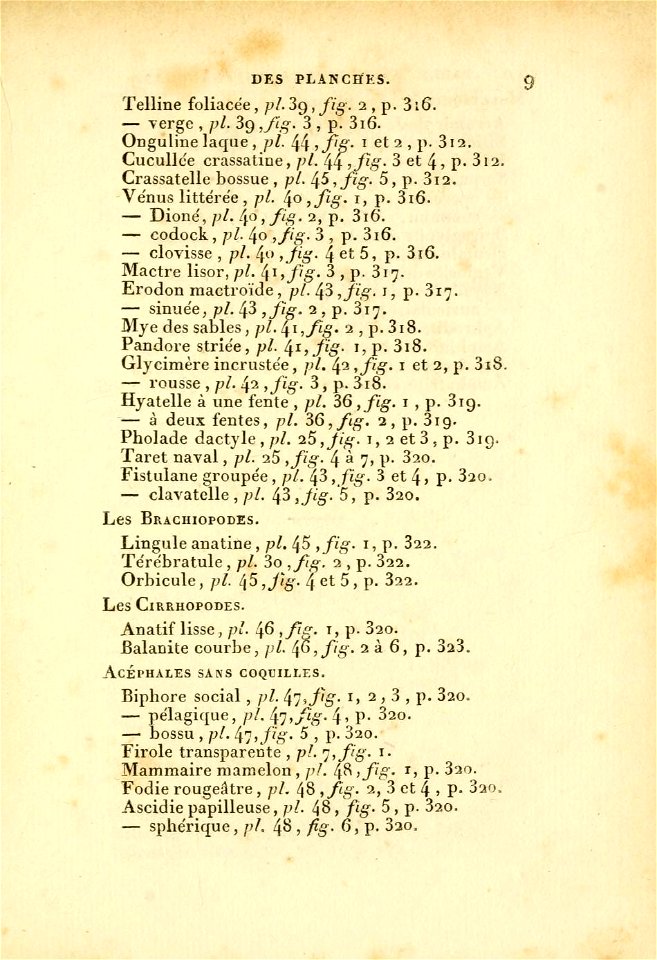 DES PLANCHES. 9
Telline foliacée, pl. 39, fig. 2, p. 316.
— verge, pl. 39, fig. 3, p. 316.
Onguline laque, pl. 44, fig. 1 et 2, p. 312.
Cucullée crassatine, pl. 44, fig. 3 et 4, p. 312.
Crassatelle bossue, pl. 45, fig. 5, p. 312.
Vénus littérée, pl. 40, fig. 1, p. 316.
— Dioné, pl. 40, fig. 2, p. 316.
— codock, pl. 40, fig. 3, p. 316.
— clovisse, pl. 40, fig. 4 et 5, p. 316.
Mactre lisor, pl. 41, fig. 3, p. 317.
Erodon mactroïde, pl. 43, fig. 1, p. 317.
— sinuée, pl. 43, fig. 2, p. 317.
Mye des sables, pl. 41, fig. 2, p. 318.
Pandore striée, pl. 41, fig. 1, p. 318.
Glycimère incrustée, pl. 42, fig. 1 et 2, p. 318.
— rousse, pl. 42, fig. 3, p. 318.
Hyatelle à une fente, pl. 36, fig. 1, p. 319.
— à deux fentes, pl. 36, fig. 2, p. 319.
Pholade dactyle, pl. 25, fig. 1, 2 et 3, p. 319.
Taret naval, pl. 25, fig. 4 à 7, p. 320.
Fistulane groupée, pl. 43, fig. 3 et 4, p. 320.
— clavatelle, pl. 43, fig. 5, p. 320.
Les BRACHIOPODES.
Lingule anatine, pl. 45, fig. 1, p. 322.
Térébratule, pl. 30, fig. 2, p. 322.
Orbicule, pl. 45, fig. 4 et 5, p. 322.
Les CIRRHOPODES.
Anatif lisse, pl. 46, fig. 1, p. 320.
Balanite courbe, pl. 46, fig. 2 à 6, p. 323.
ACÉPHALES SANS COQUILLES.
Biphore social, pl. 47, fig. 1, 2, 3, p. 320.
— pélagique, pl. 47, fig. 4, p. 320.
— bossu, pl. 47, fig. 5, p. 320.
Firole transparente, pl. 7, fig. 1.
Mammaire mamelon, pl. 48, fig. 1, p. 320.
Fodie rougeâtre, pl. 48, fig. 2, 3 et 4, p. 320.
Ascidie papilleuse, pl. 48, fig. 5, p. 320.
— sphérique, pl. 48, fig. 6, p. 320.